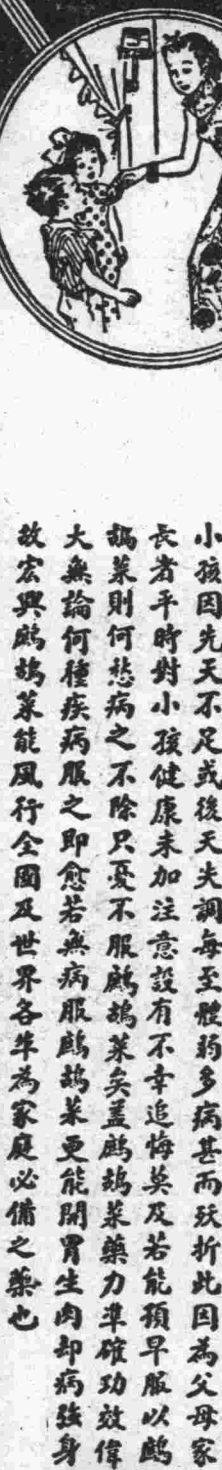 小孩因先天不足或後天失調每至體弱多病甚而殀折此因為父母家
長者平時對小孩健康未加注意設有不幸追悔莫及若能預早服以鷓
鴣菜則何愁病之不除只憂不服鷓鴣菜矣蓋鷓鴣菜藥力準確功效偉
大無論何種疾病服之即愈若無病服鷓鴣菜更能開胃生肉却病強身
故宏興鷓鴣菜能風行全國及世界各埠為家庭必備之藥也